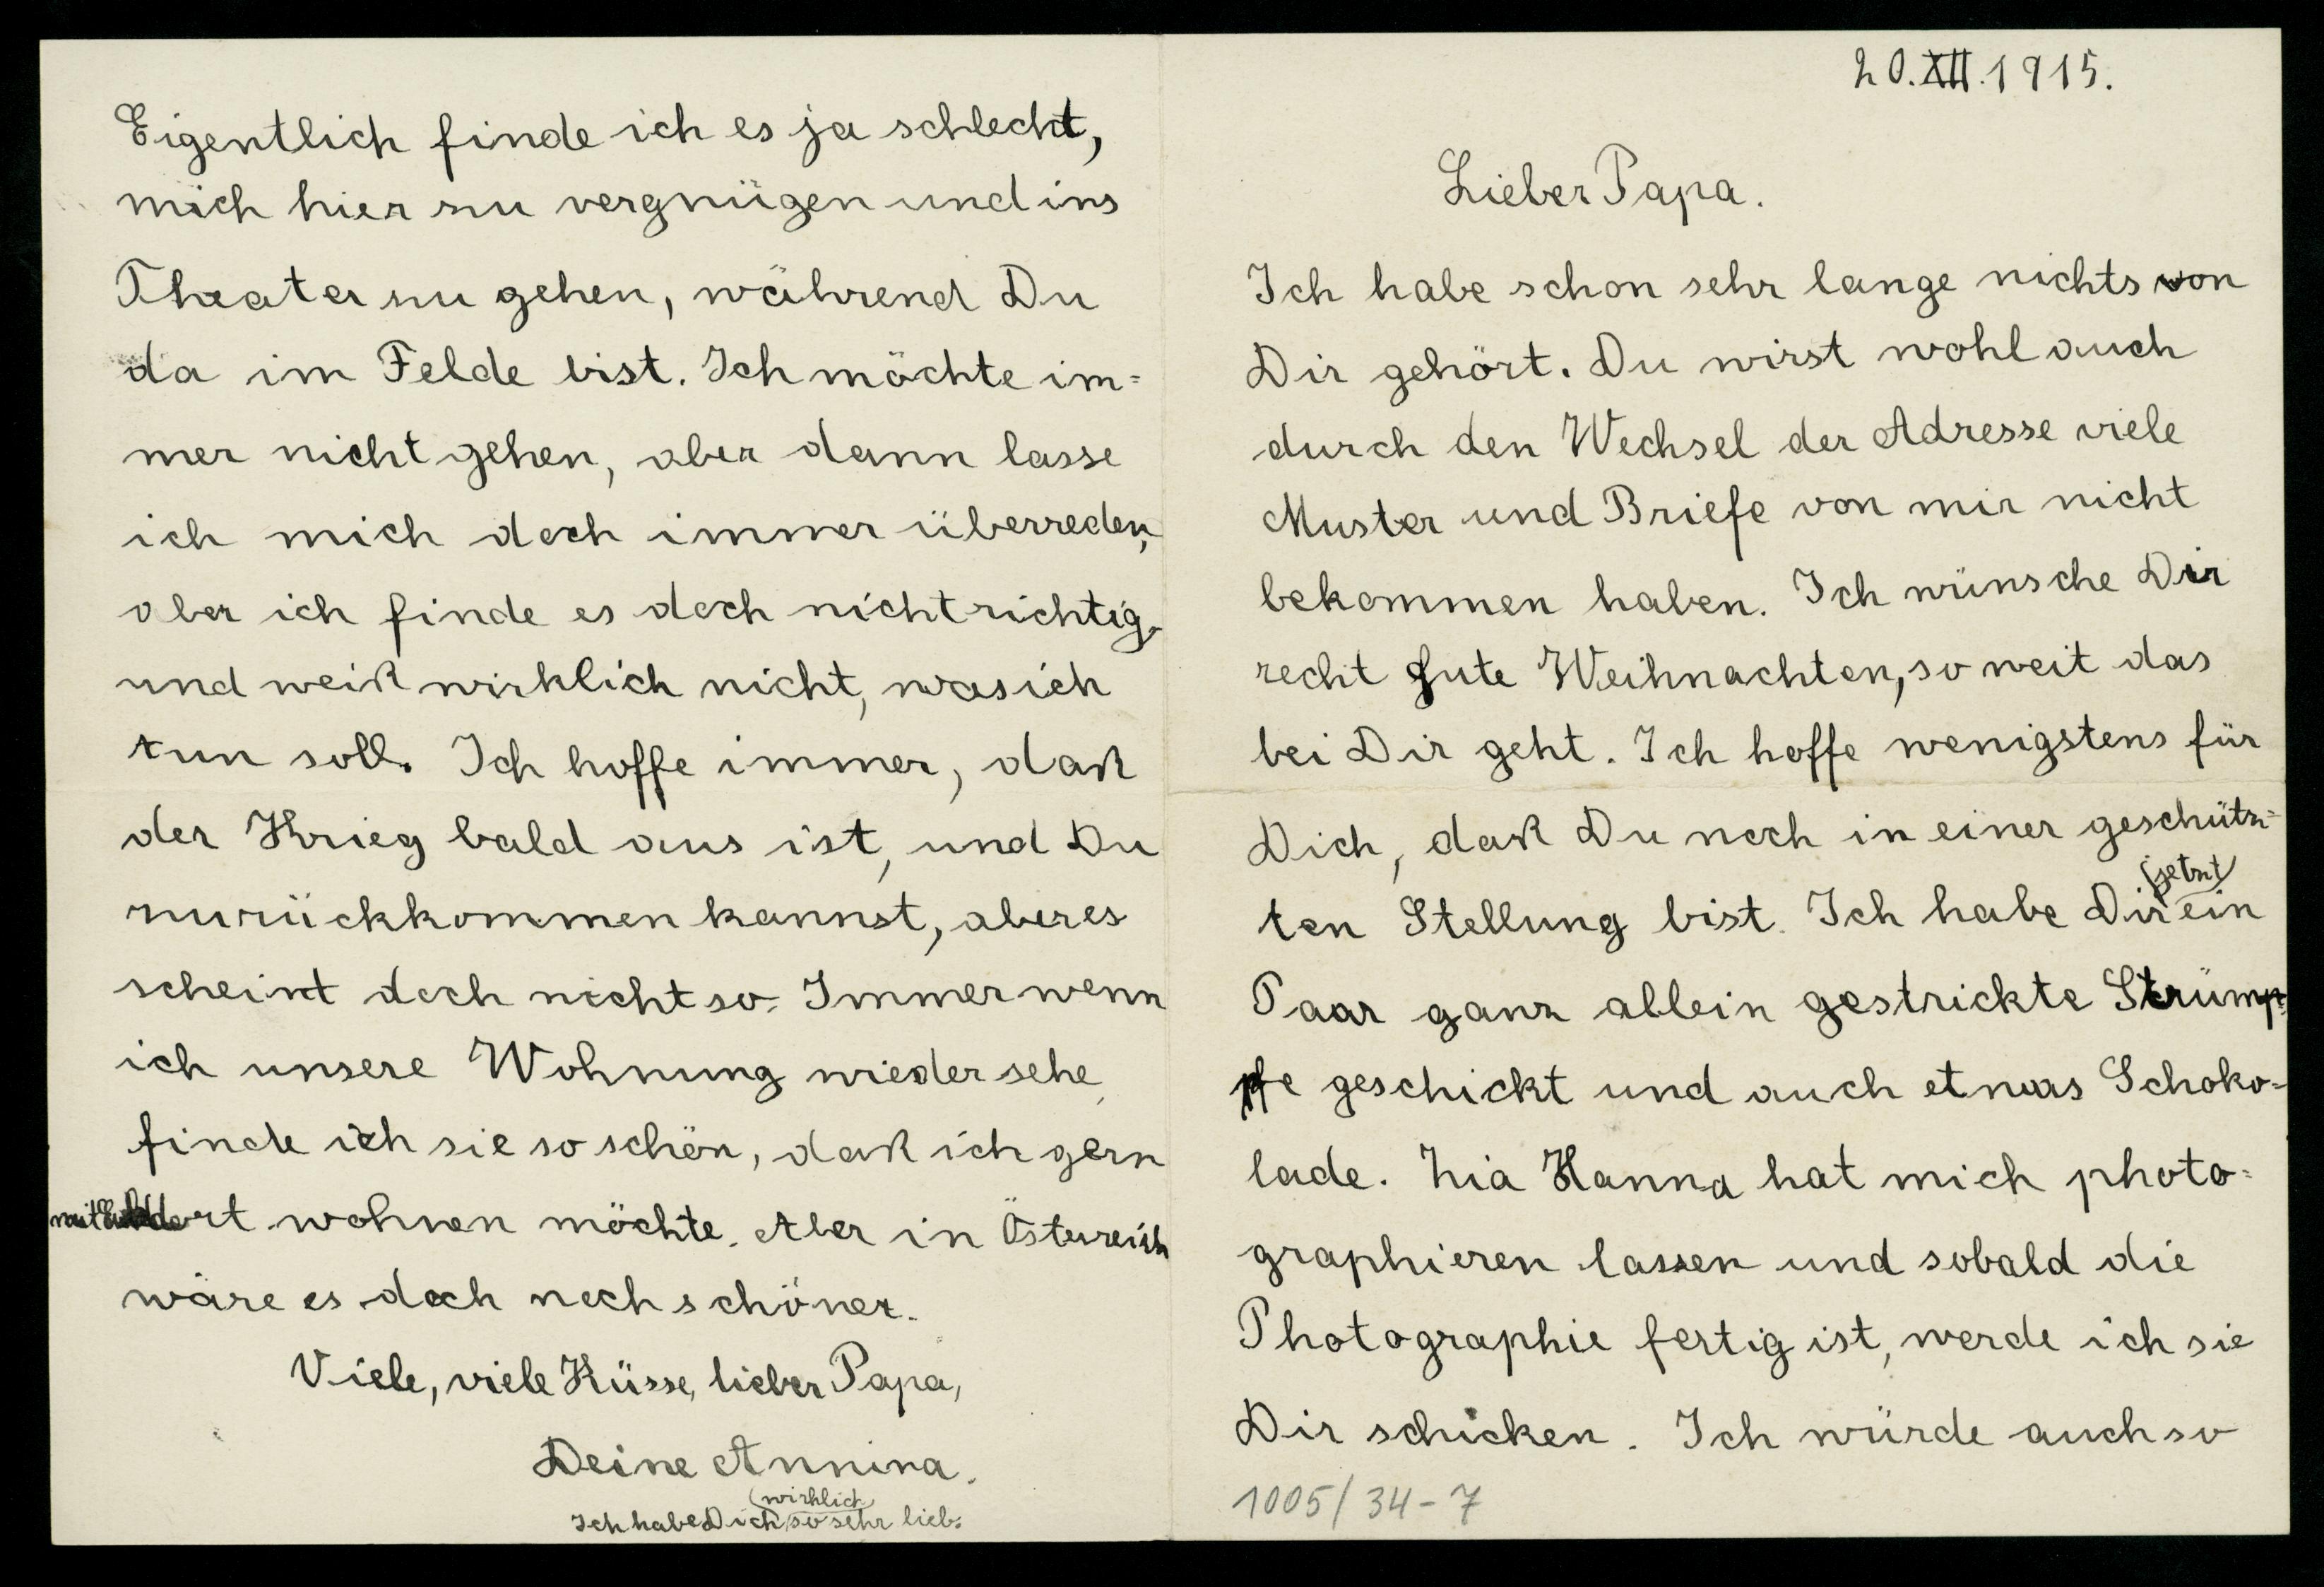 20.XII.1915.
Lieber Papa.
Ich habe schon sehr lange nichts von
Dir gehört. Du wirst wohl auch
durch den Wechsel der Adresse viele
Muster und Briefe von mir nicht
bekommen haben. Ich wünsche Dir
recht gute Weihnachten, so weit das
bei Dir geht. Ich hoffe wenigstens für
Dich, daß Du noch in einer geschütz=
(jetzt)
ten Stellung bist. Ich habe Dir ein
Paar ganz allein gestrickte Strüm=
pfe geschickt und auch etwas Schoko=
lade. Zia Hanna hat mich photo=
graphieren lassen und sobald die
Photographie fertig ist, werde ich sie
Dir schicken. Ich würde auch so
1005/34-7
Eigentlich finde ich es ja schlecht,
mich hier zu vergnügen und ins
Theater zu gehen, während Du
da im Felde bist. Ich möchte im=
mer nicht gehen, aber dann lasse
ich mich doch immer überreden,
aber ich finde es doch nicht richtig
und weiß wirklich nicht, was ich
tun soll. Ich hoffe immer, daß
der Krieg bald aus ist, und Du
zurückkommen kannst, aber es
scheint doch nicht so. Immer wenn
ich unsere Wohnung wieder sehe,
finde ich sie so schön, daß ich gern
mit dort wohnen möchte. Aber in Östereich
wäre es doch noch schöner.
Viele, viele Küsse, lieber Papa,
Deine Annina.
(wirklich)
Ich habe Dich so sehr lieb.